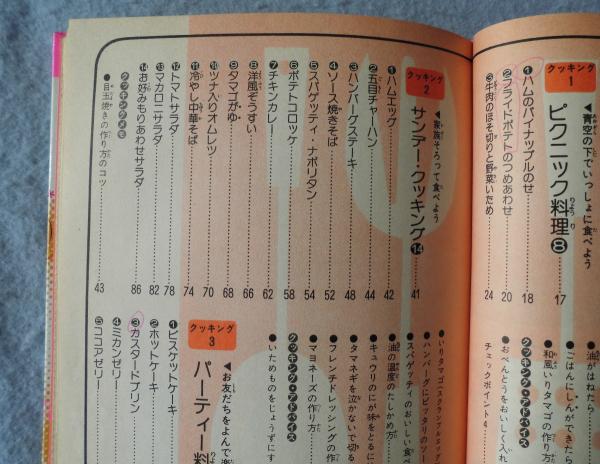 クッキング1
◀青空の下でいっしょに食べよう
ピクニック料理❽ 17
❶ハムのパイナップルのせ 18
❷フライドポテトのつめあわせ 20
❸牛肉のほそ切りと野菜いため 24
クッキング2
◀家族そろって食べよう
サンデー・クッキング⓮ 41
❶ハムエッグ 42
❷五目チャーハン 44
❸ハンバーグステーキ 48
❹ソース焼きそば 52
❺スパゲッティ・ナポリタン 54
❻ポテトコロッケ 58
❼チキンカレー 62
❽洋風ぞうすい 66
❾タマゴがゆ 68
❿ツナ入りオムレツ 70
⓫冷やし中華そば 74
⓬トマトサラダ 78
⓭マカロニサラダ 82
⓮お好みもりあわせサラダ 86
クッキングメモ
●目玉焼きの作り方のコツ 43
油がはねたら
●ごはんにしんができたら
●和風いりタマゴの作り方
クッキング・アドバイス
●おべんとうをおいしく入れ
チェックポイント4
●いりタマゴ(スクランブルエッグ
●ハンバーグにピッタリのソー
●スパゲッティのおいしい
●油の温度のたしかめ方
●キュウリのにが味をとるに
●タマネギを泣かないで切る
●フレンチドレッシングの作
●マヨネーズの作り方
クッキング・アドバイス
●いためものをじょうずにす
クッキング3
◀お友だちをよんで楽
パーティー料
❶ビスケットケーキ
❷ホットケーキ
❸カスタードプリン
❹ミカンゼリー
❺ココアゼリー